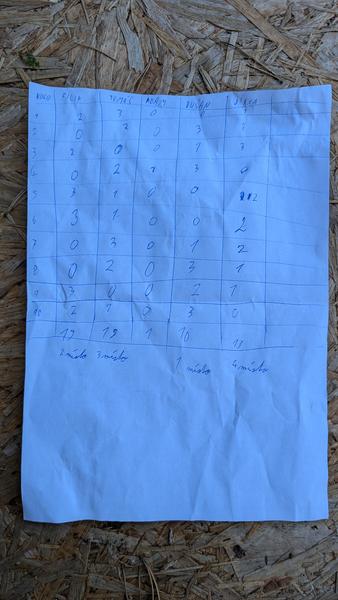 KOLO TOMÁŠ DUŠAN
1 2 3 0
2 0 2 0 3
3 2 0 0 1 3
4 0 2 3 0
5 3 1 0 0 2
6 3 1 0 0 2
7 0 3 0 1 2
8 0 2 0 3 1
9 3 0 0 2 1
10 2 1 0 3 0
1
2 místo 3 místo 1 místo 4 místo